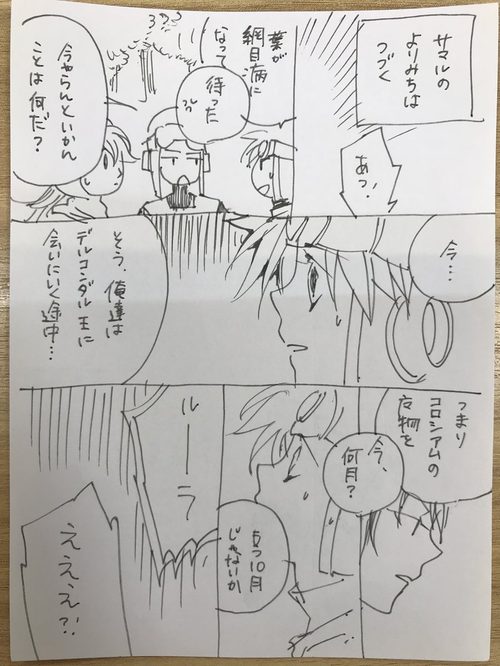 サマルの
よりみちは
つづく
あっ!
葉が
網目病に
なって
待った
今やらんといかん
ことは何だ?
今…
そう、俺達は
デルコンダル王に
会いにいく途中…
つまり
コロシアムの
今、
何月?
もう10月
じゃないか
ルーラ
えええ?!